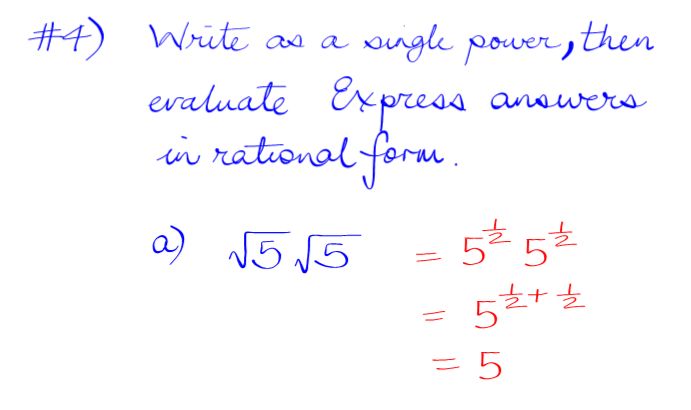 #4) Write as a single power, then
evaluate Express answers
in rational form.
a) √5 √5 = 5^½ 5^½
= 5^½+½
= 5